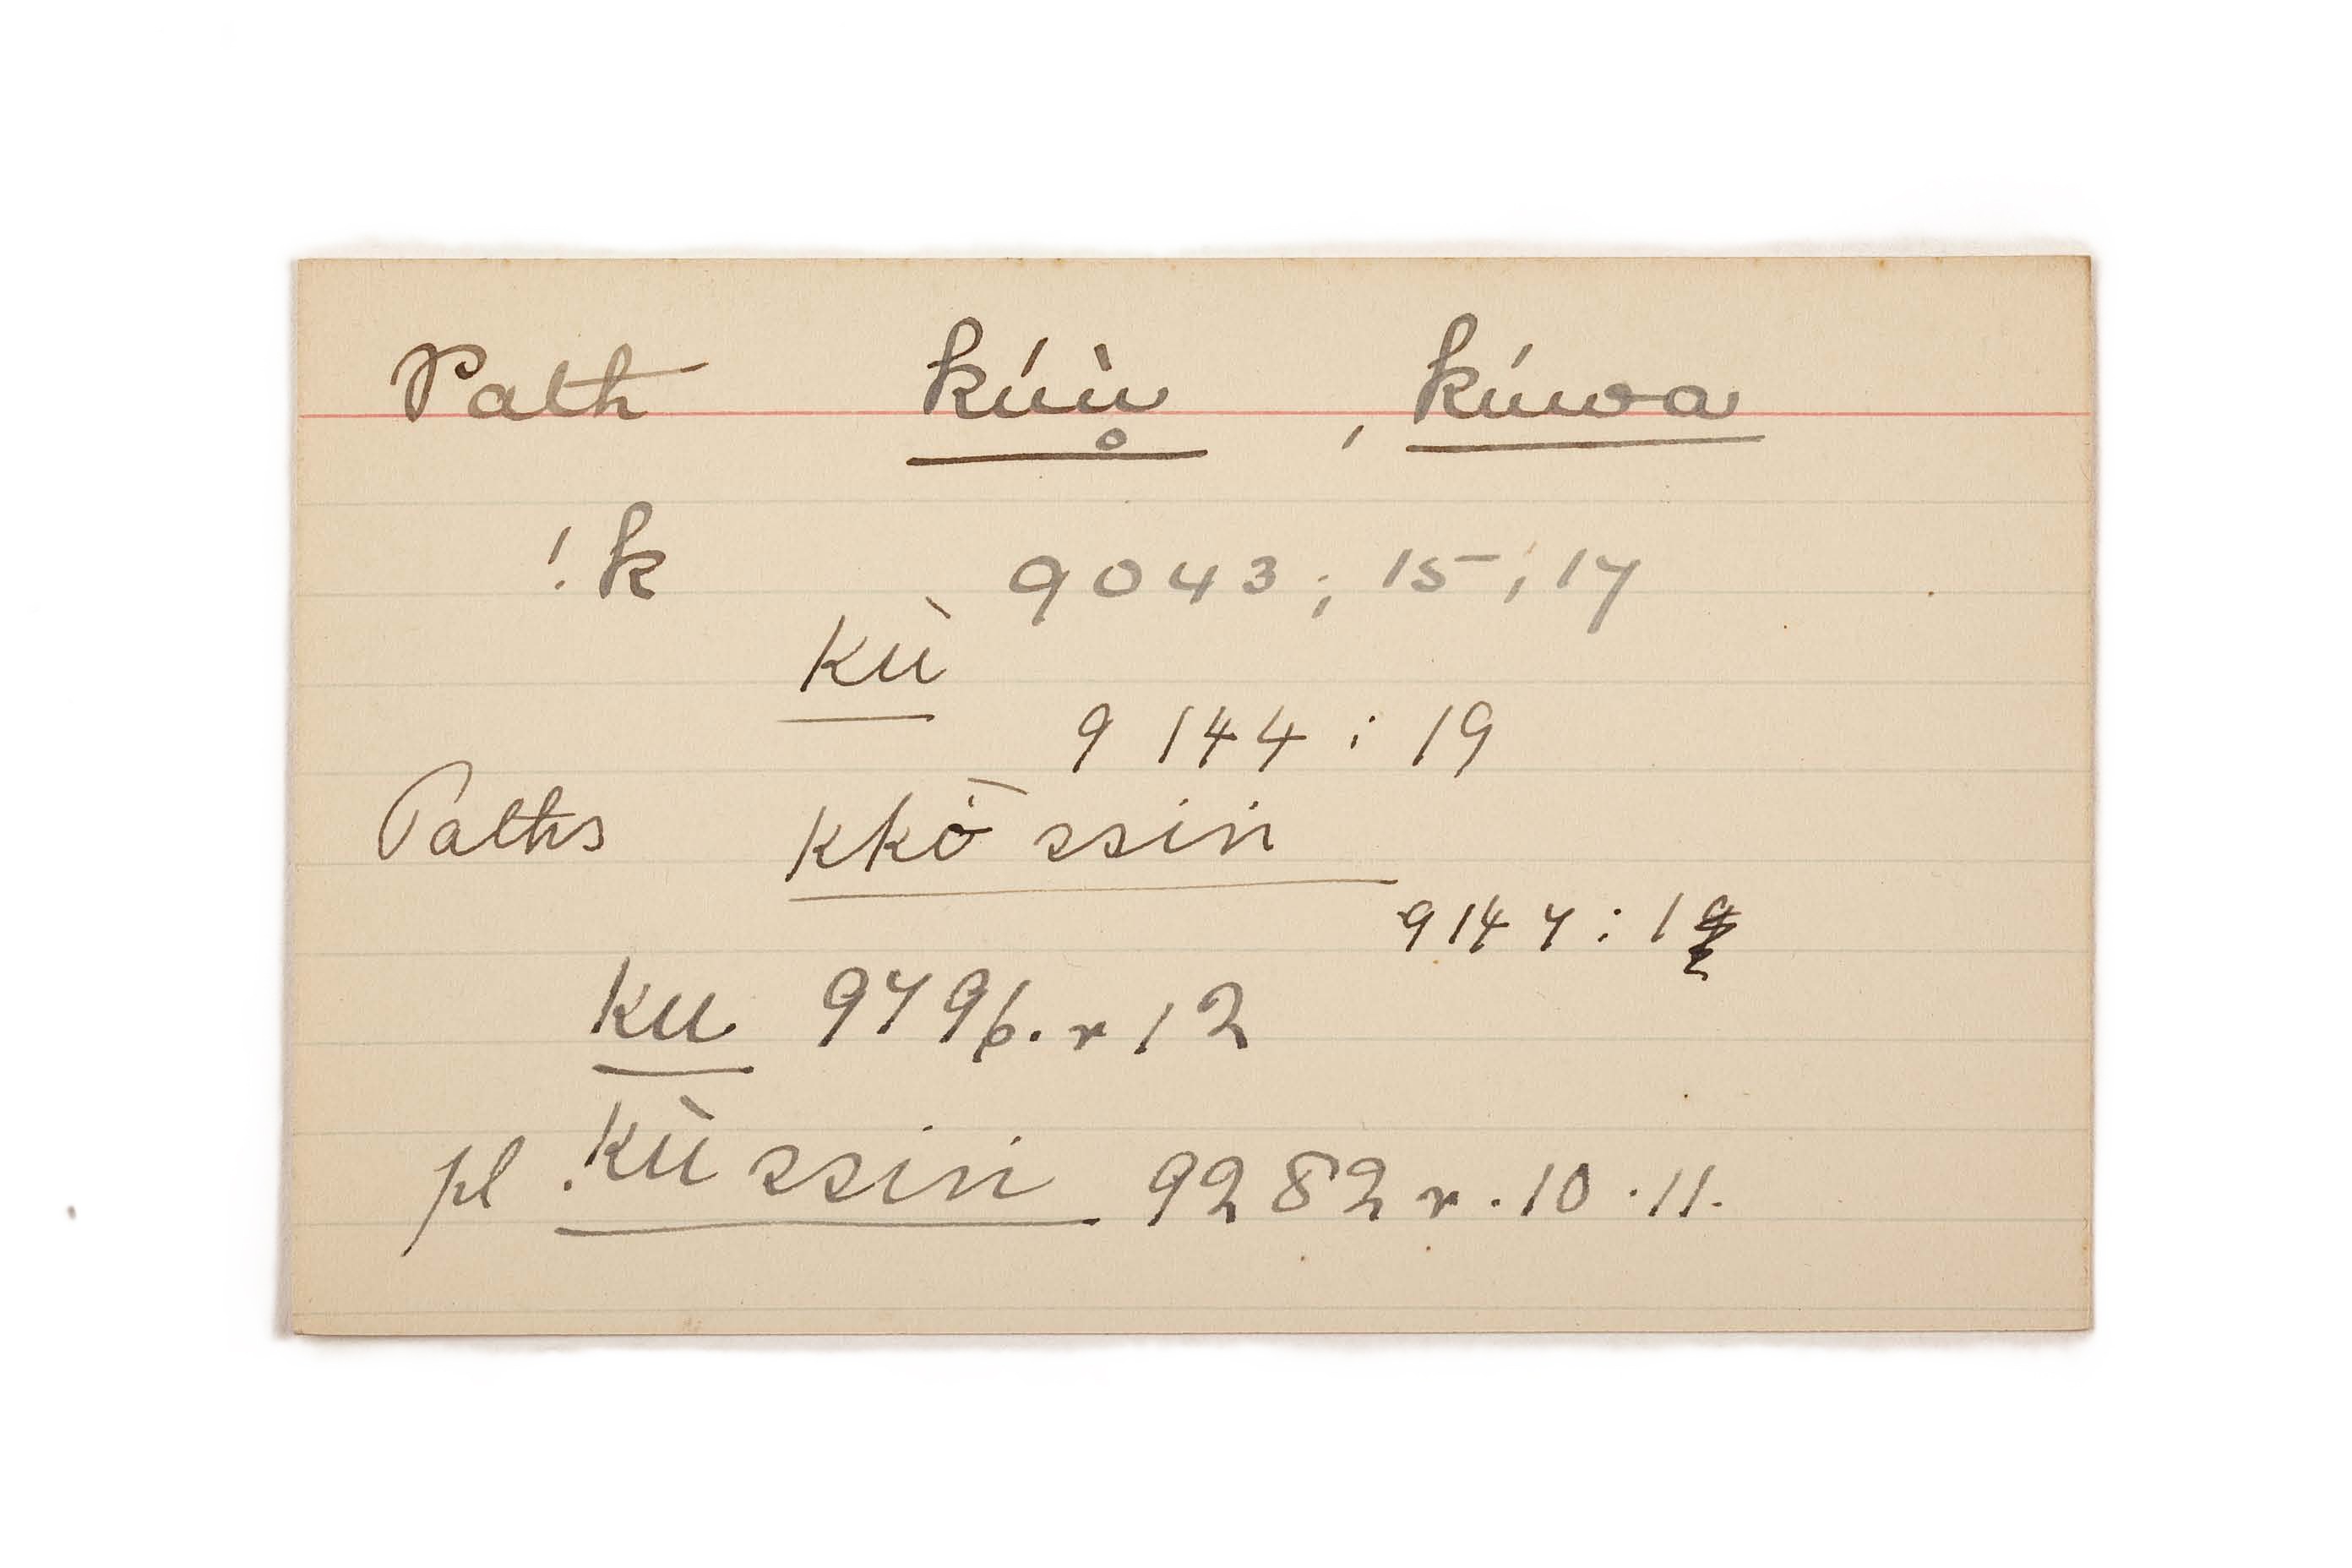 Path kúù̥ , kúwa
!k 9043; 15; 17
kù
9144: 19
Paths kkò ssin
9144: 19
ku 9796. r 12
pl. kù ssin 9282 r. 10. 11.